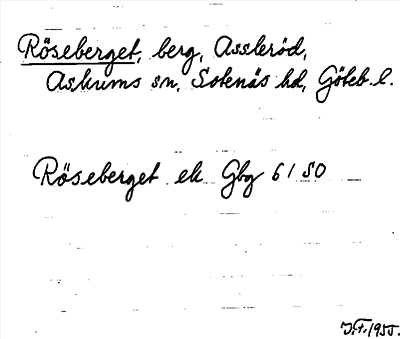 Röseberget, berg, Assleröd,
Askums sn, Sotenäs hd, Göteb. l.
Röseberget ek Gbg 61 SO
J.F. 1955.